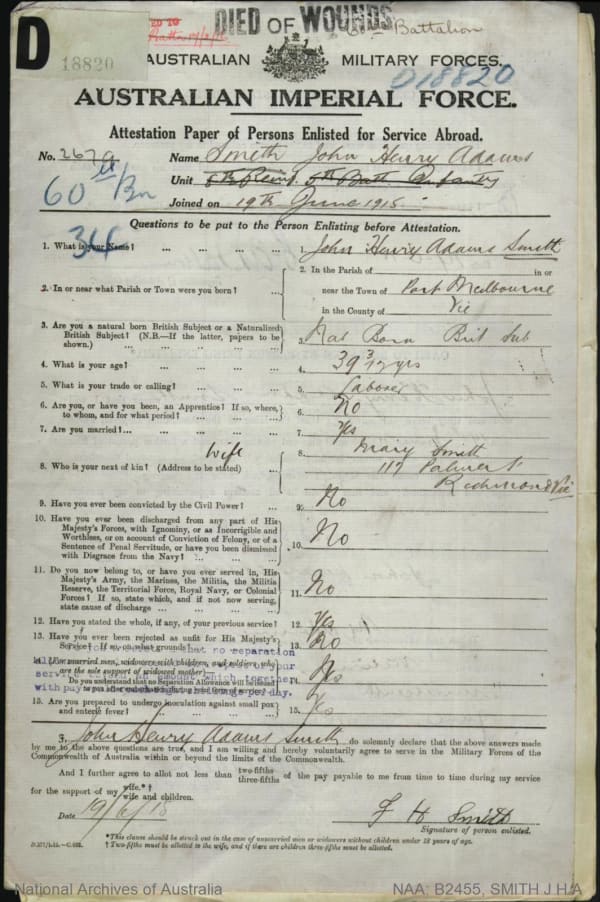 DIED OF WOUNDS
60th Battalion
D
18820
AUSTRALIAN MILITARY FORCES.
D18820
AUSTRALIAN IMPERIAL FORCE.
Attestation Paper of Persons Enlisted for Service Abroad.
No. 2679 Name Smith John Henry Adams
Unit 8th Reinf. 5th Batt Infantry
60th Bn
Joined on 19th June 1915
Questions to be put to the Person Enlisting before Attestation.
34
1. What is your Name? ... ... ... ... 1. John Henry Adams Smith
2. In or near what Parish or Town were you born? ... 2. In the Parish of in or
near the Town of Port Melbourne
in the County of Vic
3. Are you a natural born British Subject or a Naturalized
British Subject? (N.B.—If the latter, papers to be
shown.) ... ... ... ... ... 3. Nat Born Brit Sub
4. What is your age? ... ... ... ... 4. 39 3/12 yrs
5. What is your trade or calling? ... ... ... 5. Laborer
6. Are you, or have you been, an Apprentice? If so, where,
to whom, and for what period? ... ... ... 6. No
7. Are you married? ... ... ... ... 7. Yes
Wife
8. Who is your next of kin? (Address to be stated) ... 8. Mary Smith
117 Palmer St
Richmond Vic
9. Have you ever been convicted by the Civil Power? ... 9. No
10. Have you ever been discharged from any part of His
Majesty's Forces, with Ignominy, or as Incorrigible and
Worthless, or on account of Conviction of Felony, or of a
Sentence of Penal Servitude, or have you been dismissed
with Disgrace from the Navy? ... ... ... 10. No
11. Do you now belong to, or have you ever served in, His
Majesty's Army, the Marines, the Militia, the Militia
Reserve, the Territorial Force, Royal Navy, or Colonial
Forces? If so, state which, and if not now serving,
state cause of discharge ... ... ... 11. No
12. Have you stated the whole, if any, of your previous service? 12. Yes
13. Have you ever been rejected as unfit for His Majesty's
Service? If so, on what grounds? 13. No
that no separation
14. (For married men, widowers with children, and soldiers who
are the sole support of widowed mother)—
Do you understand that no Separation Allowance will be issued
14. Yes
service
amount which together
with pay
per day.
15. Are you prepared to undergo inoculation against small pox
and enteric fever? ... ... ... ... 15. Yes
I, John Henry Adams Smith do solemnly declare that the above answers made
by me to the above questions are true, and I am willing and hereby voluntarily agree to serve in the Military Forces of the
Commonwealth of Australia within or beyond the limits of the Commonwealth.
And I further agree to allot not less than two-fifths three-fifths of the pay payable to me from time to time during my service
for the support of my wife.*† wife and children.
Date 19/6/15 J H Smith
Signature of person enlisted.
*This clause should be struck out in the case of unmarried men or widowers without children under 18 years of age.
† Two-fifths must be allotted to the wife, and if there are children three-fifths must be allotted.
National Archives of Australia NAA: B2455, SMITH J H A